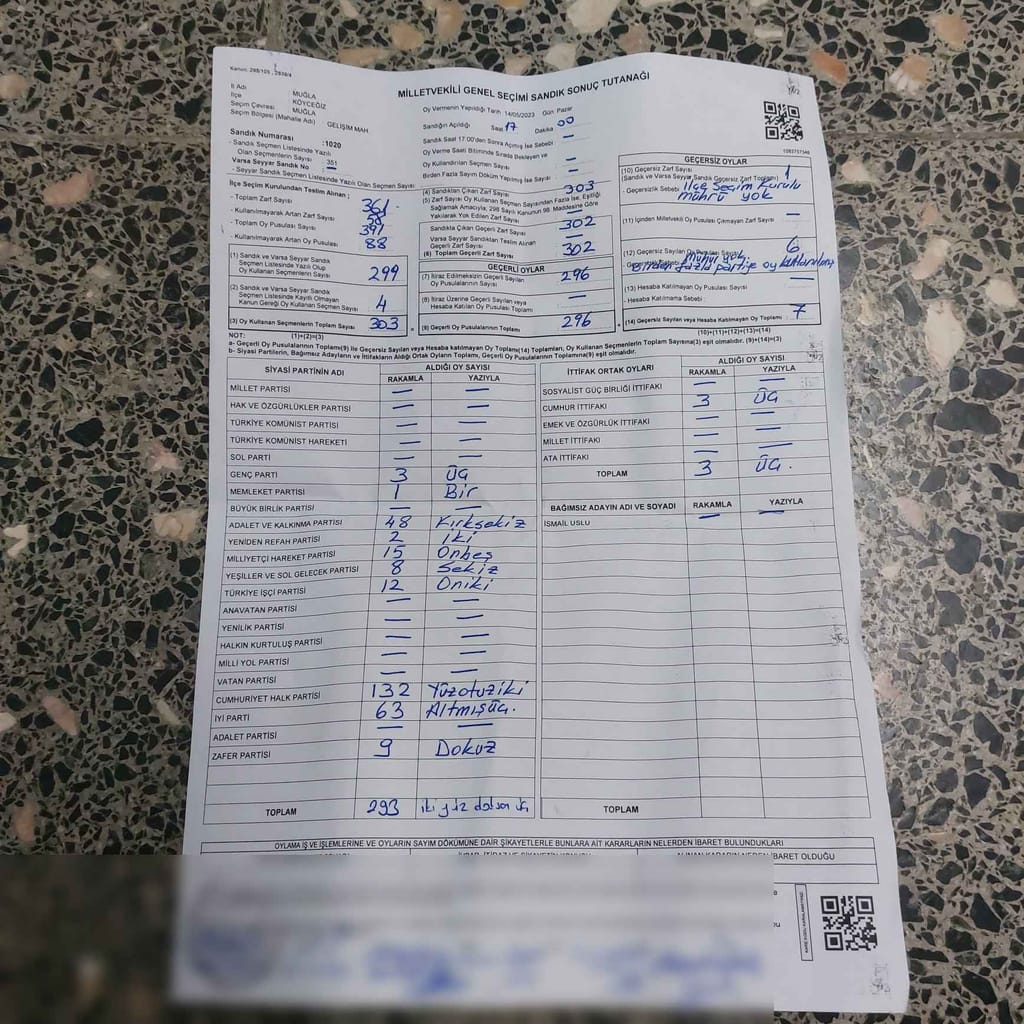 Kanun: 298/105, 2839/4
MİLLETVEKİLİ GENEL SEÇİMİ SANDIK SONUÇ TUTANAĞI
İl Adı MUĞLA
İlçe KÖYCEĞİZ
Seçim Çevresi MUĞLA
Seçim Bölgesi (Mahalle Adı) GELİŞİM MAH
Sandık Numarası :1020
- Sandık Seçmen Listesinde Yazılı Olan Seçmenlerin Sayısı 351
Varsa Seyyar Sandık No —
- Seyyar Sandık Seçmen Listesinde Yazılı Olan Seçmen Sayısı
Oy Vermenin Yapıldığı Tarih 14/05/2023 Gün Pazar
Sandığın Açıldığı Saat 17 Dakika 00
Sandık Saat 17:00'den Sonra Açılmış İse Sebebi —
Oy Verme Saati Bitiminde Sırada Bekleyen ve
Oy Kullandırılan Seçmen Sayısı —
Birden Fazla Sayım Döküm Yapılmış İse Sayısı —
İlçe Seçim Kurulundan Teslim Alınan ;
- Toplam Zarf Sayısı 361
- Kullanılmayarak Artan Zarf Sayısı 58
- Toplam Oy Pusulası Sayısı 391
- Kullanılmayarak Artan Oy Pusulası 88
(1) Sandık ve Varsa Seyyar Sandık
Seçmen Listesinde Yazılı Olup
Oy Kullanan Seçmenlerin Sayısı 299
(2) Sandık ve Varsa Seyyar Sandık
Seçmen Listesinde Kayıtlı Olmayan
Kanun Gereği Oy Kullanan Seçmen Sayısı 4
(3) Oy Kullanan Seçmenlerin Toplam Sayısı 303
(1)+(2)=(3)
(4) Sandıktan Çıkan Zarf Sayısı 303
(5) Zarf Sayısı Oy Kullanan Seçmen Sayısından Fazla İse, Eşitliği
Sağlamak Amacıyla, 298 Sayılı Kanunun 98. Maddesine Göre
Yakılarak Yok Edilen Zarf Sayısı —
Sandıkta Çıkan Geçerli Zarf Sayısı 302
Varsa Seyyar Sandıktan Teslim Alınan
Geçerli Zarf Sayısı —
(6) Toplam Geçerli Zarf Sayısı 302
GEÇERLİ OYLAR
(7) İtiraz Edilmeksizin Geçerli Sayılan
Oy Pusulalarının Sayısı 296
(8) İtiraz Üzerine Geçerli Sayılan veya
Hesaba Katılan Oy Pusulası Toplamı —
(9) Geçerli Oy Pusulalarının Toplamı 296
GEÇERSİZ OYLAR
(10) Geçersiz Zarf Sayısı 1
(Sandık ve Varsa Seyyar Sandık Geçersiz Zarf Toplamı)
- Geçersizlik Sebebi İlçe Seçim Kurulu
mührü yok
(11) İçinden Milletvekili Oy Pusulası Çıkmayan Zarf Sayısı —
(12) Geçersiz Sayılan Oy Pusulası Sayısı 6
Birden fazla partiye oy kullanılmış
(13) Hesaba Katılmayan Oy Pusulası Sayısı —
- Hesaba Katılmama Sebebi :
(14) Geçersiz Sayılan veya Hesaba Katılmayan Oy Toplamı 7
(10)+(11)+(12)+(13)=(14)
NOT:
a- Geçerli Oy Pusulalarının Toplamı(9) ile Geçersiz Sayılan veya Hesaba Katılmayan Oy Toplamı(14) Toplamları, Oy Kullanan Seçmenlerin Toplam Sayısına(3) eşit olmalıdır. (9)+(14)=(3)
b- Siyasi Partilerin, Bağımsız Adayların ve İttifakların Aldığı Ortak Oyların Toplamı, Geçerli Oy Pusulalarının Toplamına(9) eşit olmalıdır.
SİYASİ PARTİNİN ADI ALDIĞI OY SAYISI
RAKAMLA YAZIYLA
MİLLET PARTİSİ — —
HAK VE ÖZGÜRLÜKLER PARTİSİ — —
TÜRKİYE KOMÜNİST PARTİSİ — —
TÜRKİYE KOMÜNİST HAREKETİ — —
SOL PARTİ — —
GENÇ PARTİ 3 ÜÇ
MEMLEKET PARTİSİ 1 Bir
BÜYÜK BİRLİK PARTİSİ — —
ADALET VE KALKINMA PARTİSİ 48 Kırksekiz
YENİDEN REFAH PARTİSİ 2 iki
MİLLİYETÇİ HAREKET PARTİSİ 15 Onbeş
YEŞİLLER VE SOL GELECEK PARTİSİ 8 Sekiz
TÜRKİYE İŞÇİ PARTİSİ 12 Oniki
ANAVATAN PARTİSİ — —
YENİLİK PARTİSİ — —
HALKIN KURTULUŞ PARTİSİ — —
MİLLİ YOL PARTİSİ — —
VATAN PARTİSİ — —
CUMHURİYET HALK PARTİSİ 132 Yüzotuziki
İYİ PARTİ 63 Altmışüç.
ADALET PARTİSİ — —
ZAFER PARTİSİ 9 Dokuz
TOPLAM 293
İTTİFAK ORTAK OYLARI ALDIĞI OY SAYISI
RAKAMLA YAZIYLA
SOSYALİST GÜÇ BİRLİĞİ İTTİFAKI — —
CUMHUR İTTİFAKI 3 ÜÇ
EMEK VE ÖZGÜRLÜK İTTİFAKI — —
MİLLET İTTİFAKI — —
ATA İTTİFAKI — —
TOPLAM 3 ÜÇ.
BAĞIMSIZ ADAYIN ADI VE SOYADI RAKAMLA YAZIYLA
İSMAİL USLU — —
TOPLAM
OYLAMA İŞ VE İŞLEMLERİNE VE OYLARIN SAYIM DÖKÜMÜNE DAİR ŞİKAYETLERLE BUNLARA AİT KARARLARIN NELERDEN İBARET BULUNDUKLARI